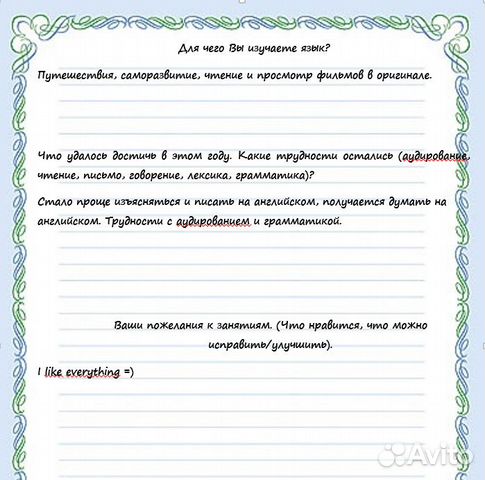 Для чего Вы изучаете язык?
Путешествия, саморазвитие, чтение и просмотр фильмов в оригинале.
Что удалось достичь в этом году. Какие трудности остались (аудирование,
чтение, письмо, говорение, лексика, грамматика)?
Стало проще изъясняться и писать на английском, получается думать на
английском. Трудности с аудированием и грамматикой.
Ваши пожелания к занятиям. (Что нравится, что можно
исправить/улучшить).
I like everything =)
Avito